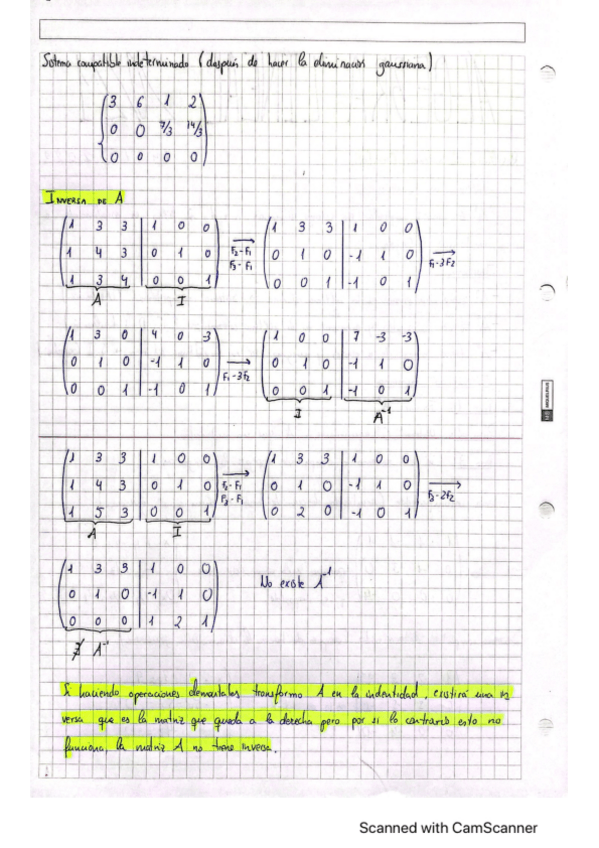 Sistema compatible indeterminado (después de hacer la eliminación gaussiana)
3 6 1 2
0 0 7/3 14/3
0 0 0 0
INVERSA DE A
1 3 3 | 1 0 0
1 4 3 | 0 1 0
1 3 4 | 0 0 1
A I
F2-F1
F3-F1
1 3 3 | 1 0 0
0 1 0 | -1 1 0
0 0 1 | -1 0 1
F1-3F2
1 3 0 | 4 0 -3
0 1 0 | -1 1 0
0 0 1 | -1 0 1
F1-3F2
1 0 0 | 7 -3 -3
0 1 0 | -1 1 0
0 0 1 | -1 0 1
I A⁻¹
1 3 3 | 1 0 0
1 4 3 | 0 1 0
1 5 3 | 0 0 1
A I
F2-F1
F3-F1
1 3 3 | 1 0 0
0 1 0 | -1 1 0
0 2 0 | -1 0 1
F3-2F2
1 3 3 | 1 0 0
0 1 0 | -1 1 0
0 0 0 | 1 2 1
∄ A⁻¹
No existe A⁻¹
Si haciendo operaciones elementales transformo A en la indentidad existirá una in
versa que es la matriz que queda a la derecha pero por si lo contrario esto no
funciona, la matriz A no tiene inversa.
Scanned with CamScanner